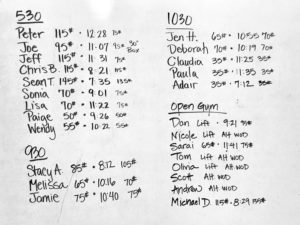 530
Peter 115# · 12:28 75#
Joe 95# · 11:07 95# 30" Box
Jeff 115# · 11:31 75#
Chris B. 115# · 8:21 115#
Sean T. 145# · 7:35 135#
Sonia 70# · 9:01 75#
Lisa 70# · 11:22 75#
Paige 50# · 9:26 50#
Wendy 55# · 10:22 55#
930
Stacy A. 85# · 8:12 105#
Melissa 65# · 10:16 70#
Jamie 75# · 10:40 75#
1030
Jen H. 65# · 10:55 70#
Deborah 70# · 10:19 70#
Claudia 35# · 11:25 35#
Paula 35# · 11:35 35#
Adair 35# · 7:12 35#
Open Gym
Don Lift · 9:21 95#
Nicole Lift Alt WOD
Sarai 65# · 11:41 75#
Tom Lift Alt WOD
Olivia Lift Alt WOD
Scott Alt WOD
Andrew Alt WOD
Michael D. 115# · 8:29 135#